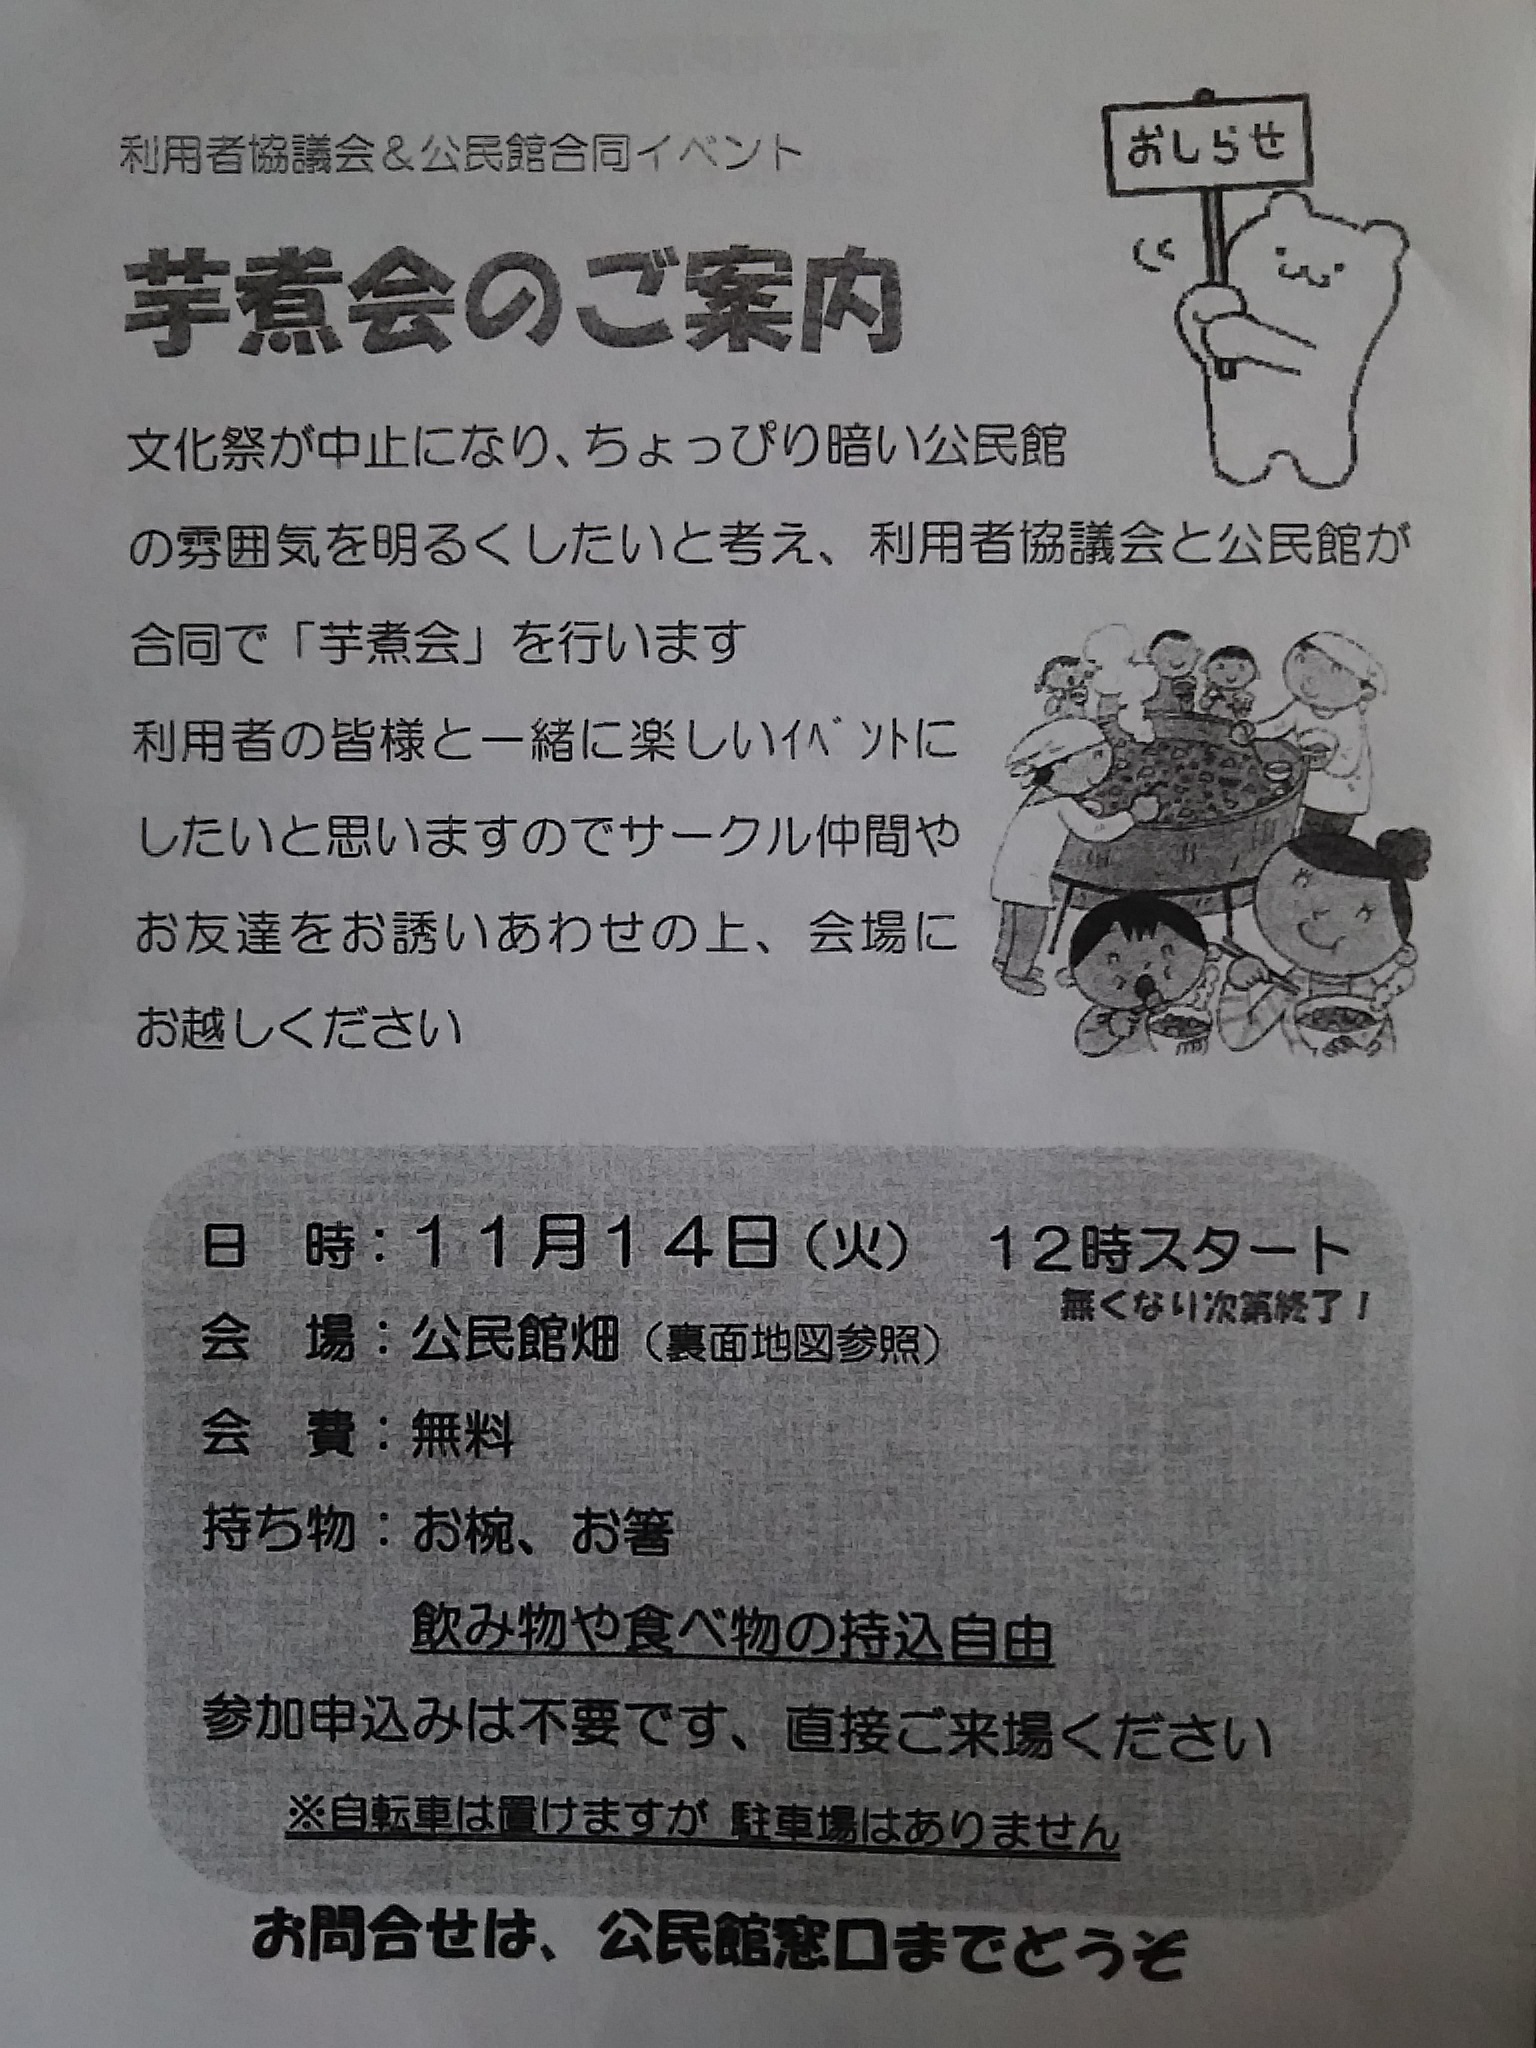 おしらせ
利用者協議会＆公民館合同イベント
芋煮会のご案内
文化祭が中止になり、ちょっぴり暗い公民館
の雰囲気を明るくしたいと考え、利用者協議会と公民館が
合同で「芋煮会」を行います
利用者の皆様と一緒に楽しいｲﾍﾞﾝﾄに
したいと思いますのでサークル仲間や
お友達をお誘いあわせの上、会場に
お越しください
日　時：１１月１４日（火）　１２時スタート
無くなり次第終了！
会　場：公民館畑（裏面地図参照）
会　費：無料
持ち物：お椀、お箸
飲み物や食べ物の持込自由
参加申込みは不要です、直接ご来場ください
※自転車は置けますが 駐車場はありません
お問合せは、公民館窓口までどうぞ